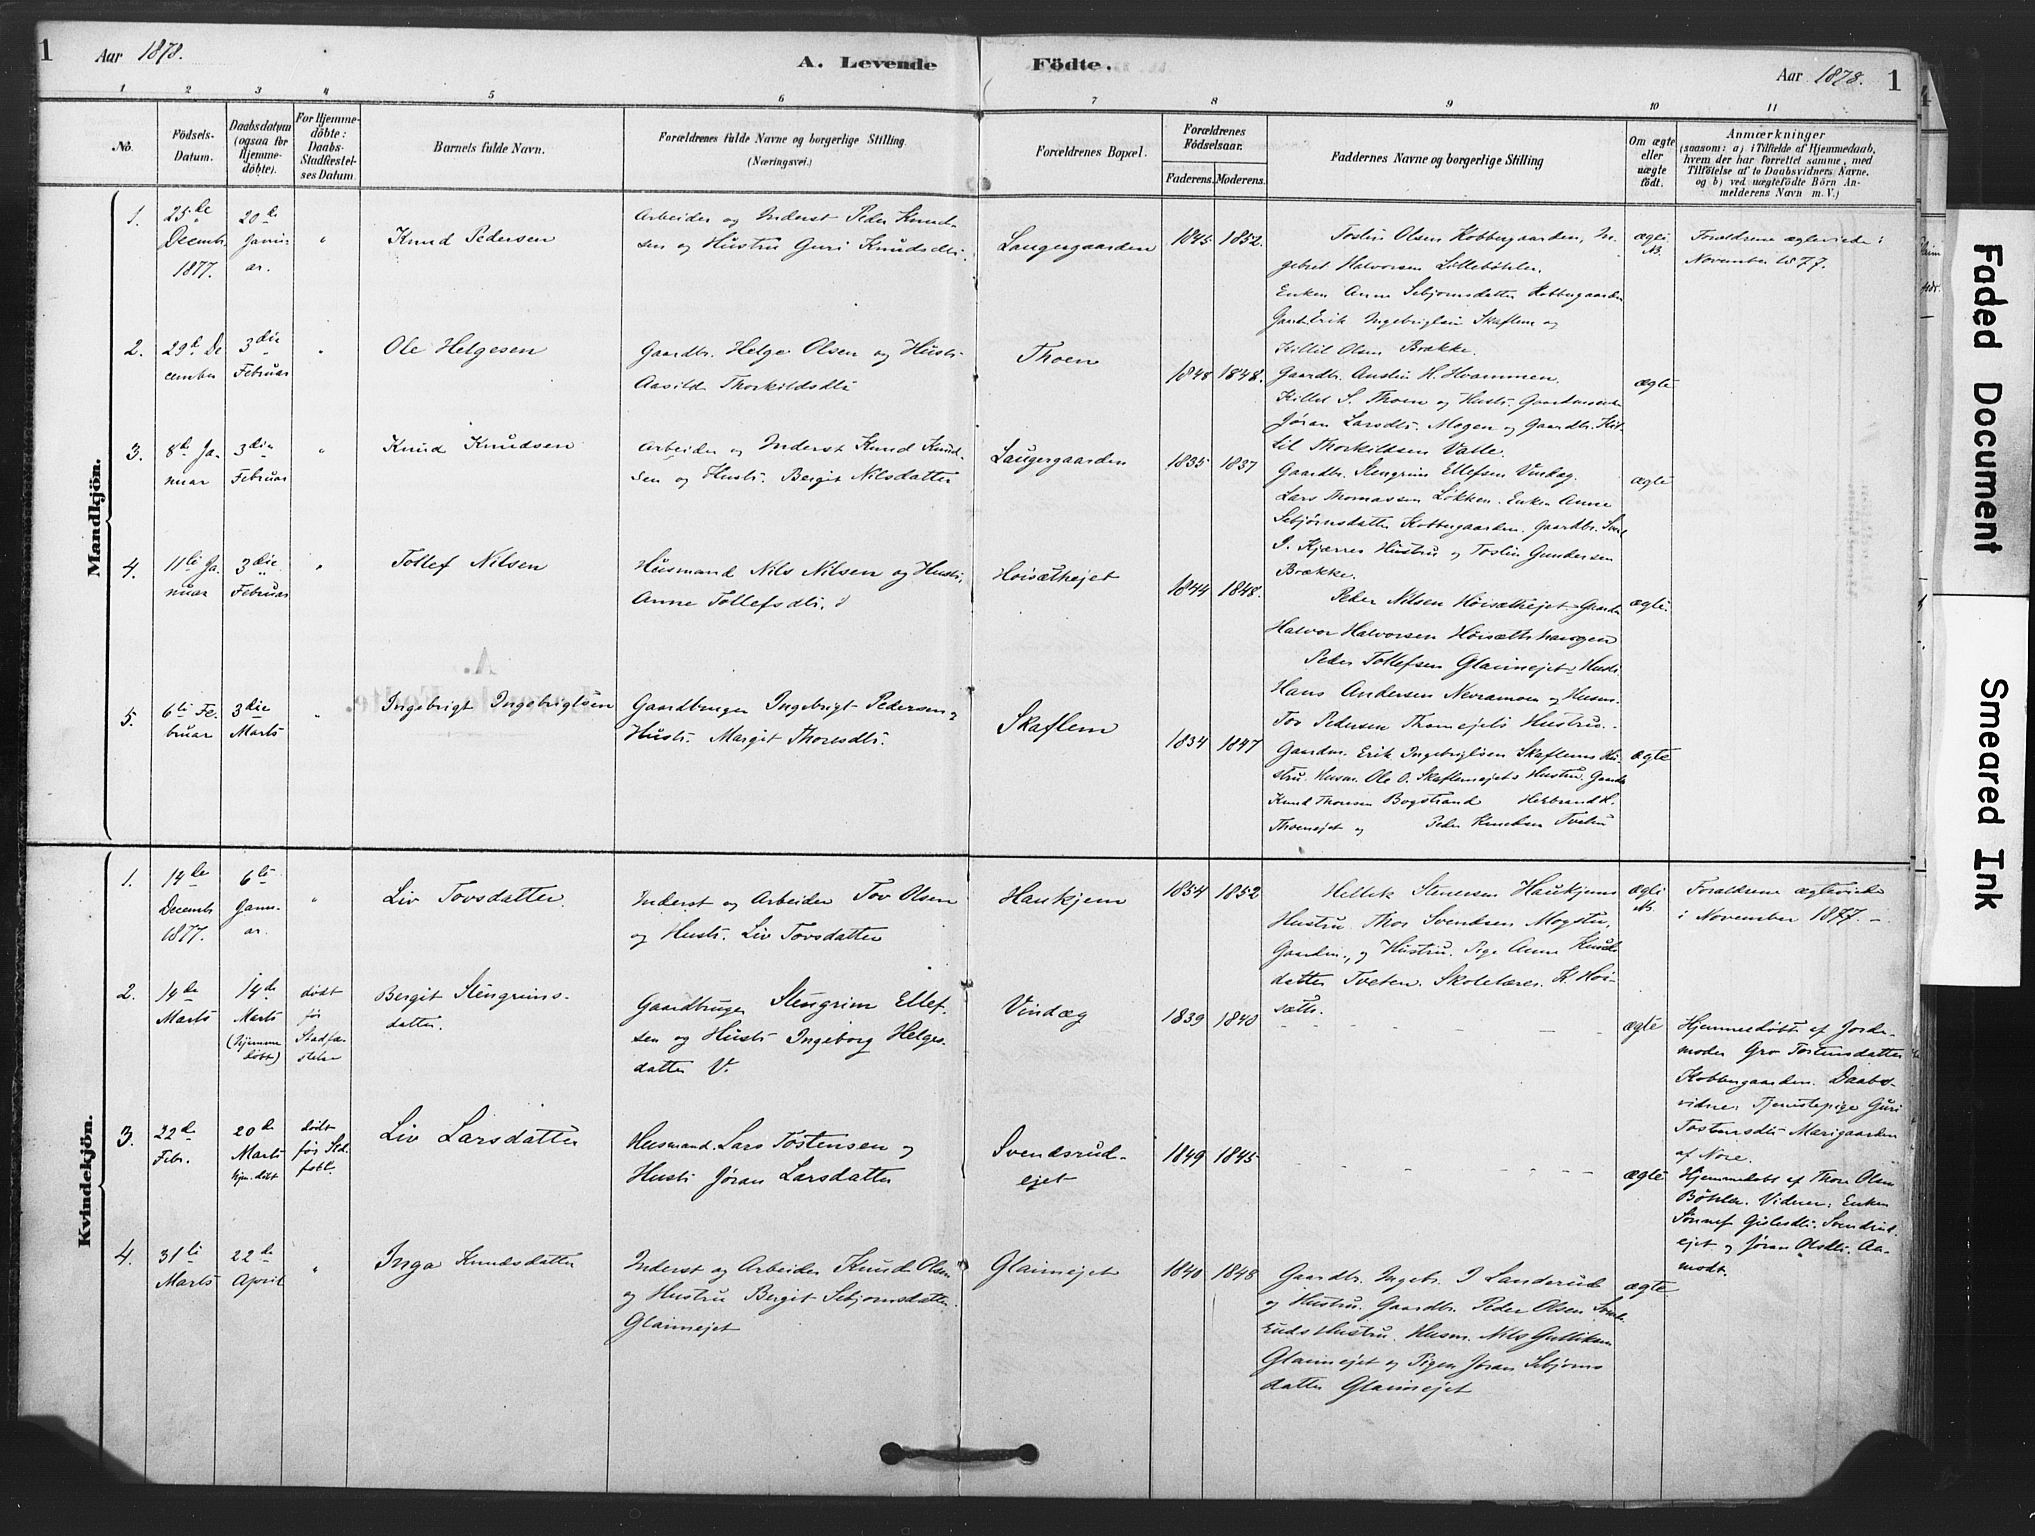 1 Aar 1878. A. Levende Födte. Aar 1878. 1
1 2 3 4 5 6 7 8 9 10 11
No. Födsels-Datum. Daabsdatum (ogsaa for Hjemmedöbte). For Hjemmedöbte: Daabs-Stadfæstelses Datum. Barnets fulde Navn. Forældrenes fulde Navne og borgerlige Stilling (Næringsvei.) Forældrenes Bopæl. Forældrenes Födselsaar. Faderens. Moderens. Faddernes Navne og borgerlige Stilling Om ægte eller uægte födt. Anmærkninger (saasom: a) i Tilfælde af Hjemmedaab, hvem der har forrettet samme, med Tilföielse af to Daabsvidners Navne. og b) ved uægtefödte Börn Anmelderens Navn m. V.)
Mandkjön.
1. 25de Decembr 1877. 20de Januar. " Knud Pedersen
Arbeider og Inderst Peder Knud-
sen og Hustru Guri Knudsdtr.
Laugergaarden 1845 1852.
Tostin Olsen Kobbergaarden, In-
gebret Halvorsen Lillebøhler.
Enken Anne Sebjørnsdatter Kobbergaarden
Gaardbr. Erik Ingebrigtsen Skaflem og
Killil Olsen Brække.
ægte NB.
Forældrene ægteviede i
November 1877.
2. 29de December 3die Februar " Ole Helgesen
Gaardbr. Helge Olsen og Hustr.
Aasild Thorkildsdtr
Thoen 1848 1848.
Gaardbr. Austin H. Hvammen.
Killel S. Thoen og Hustr. Gaardmand
Jøran Larsdtr. Mogen og Gaardbr. Kit-
til Thorkildsen Valle.
ægte
3. 8de Januar 3die Februar " Knud Knudsen
Arbeider og Inderst Knud Knud-
sen og Hustr. Bergit Nilsdatter
Laugergaarden 1835 1837
Gaardbr. Stengrim Ellefsen Vindæg.
Lars Thomassen Løkken. Enken Anne
Sebjørnsdatter Kobbergaarden. Gaardbr.
I. Kjærres Hustru og Tostin Gundersen
Brække.
ægte
4. 11te Januar 3die Februar " Tollef Nilsen
Husmand Nils Nilsen og Hustr.
Anne Tollefsdtr.
Høisæthejet 1844 1848.
Peder Nilsen Høisæthejet Gaardbr
Halvor Halvorsen Høisæthhaugen
Peder Tollefsen Glaimejet Hustr
Hans Andersen Nevramoen og Husm.
Tov Pedersen Thoenejets Hustru.
ægte.
5. 6te Februar 3die Marts " Ingebrigt Ingebrigtsen
Gaardbruger Ingebrigt Pedersen og
Hustr. Margit Thoresdtr.
Skaflem 1834 1847
Gaardm. Erik Ingebrigtsen Skaflems Hu-
stru. Husm. Ole O. Skaflemejets Hustru. Gaardbr
Knud Thoresen Bogstrand Herbrand H.
Thoenejet og Peder Knudsen Tveten
ægte
Kvindekjön.
1. 14de Decembr 1877. 6te Januar. " Liv Tovsdatter
Inderst og Arbeider Tov Olsen
og Hustr. Liv Tovsdatter
Haukjem 1854 1852
Hellek Stenersen Haukjems
Hustru Thor Svendsen Mogstu,
Gaardm., og Hustru. Pige Anne Knuds-
datter Tveten. Skolelærer. K. Høi-
sæth.
ægte NB.
Forældrene ægteviede
i November 1877. —
2. 14de Marts 14de Marts (hjemmedøbt) dødt før Stadfæstelse Bergit Stengrims-
datter.
Gaardbruger Stengrim Ellef-
sen og Hustr Ingeborg Helges-
datter V.
Vindæg 1839 1840
ægte
Hjemmedøbt af Jorde-
moder Gro Tostensdatter
Kobbergaarden. Daabs-
vidner Tjenestepige Guri
Tostensdtr Marigaarden
af Nore.
3. 22de Febr. 20de Marts hjm. døbt dødt før Stdfæst. Liv Larsdatter
Husmand Lars Tostensen og
Hustr Jøran Larsdatter
Svendsrud-
ejet 1849 1845
ægte
Hjemmedøbt af Thore Olsen
Bøhler. Vidner: Enken
Sønnef Gislesdtr. Svendsrud-
ejet og Jøran Olsdtr. Aa-
modt.
4. 31te Marts 22de April " Inga Knudsdatter
Inderst og Arbeider Knud Olsen
og Hustru Bergit Sebjørnsdatter.
Glaimejet
Glaimejet 1840 1848
Gaardbr. Ingebr. I Sanderud
og Hustru. Gaardbr. Peder Olsen Svends-
ruds Hustru. Husm. Nils Gulliksen
Glaimejet og Pigen Jøran Sebjørns
datter Glaimejet
ægte
Faded Document
Smeared Ink